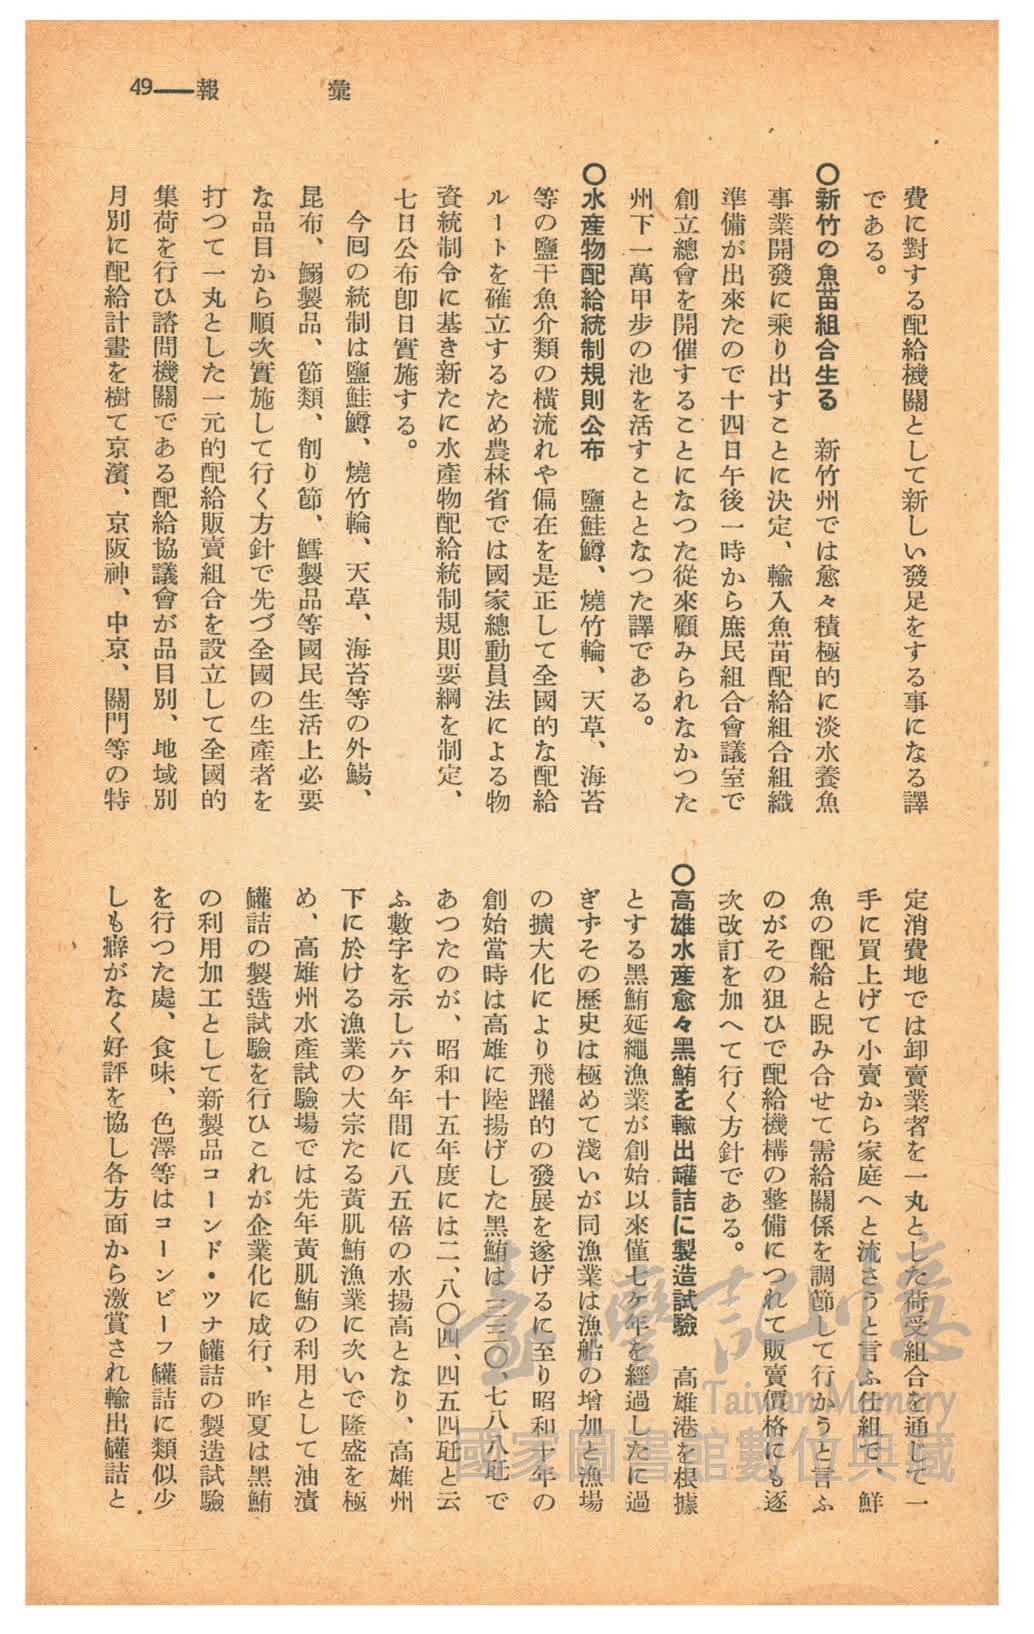 彙報――49
費に對する配給機關として新しい發足をする事になる譯
である。
〇新竹の魚苗組合生る 新竹州では愈々積極的に淡水養魚
事業開發に乘り出すことに決定、輸入魚苗配給組合組織
準備が出來たので十四日午後一時から庶民組合會議室で
創立總會を開催することになつた從來顧みられなかつた
州下一萬甲步の池を活すこととなつた譯である。
〇水產物配給統制規則公布 鹽鮭鱒、燒竹輪、天草、海苔
等の鹽干魚介類の橫流れや偏在を是正して全國的な配給
ルートを確立するため農林省では國家總動員法による物
資統制令に基き新たに水產物配給統制規則要綱を制定、
七日公布卽日實施する。
今囘の統制は鹽鮭鱒、燒竹輪、天草、海苔等の外鯣、
昆布、鰯製品、節類、削り節、鱈製品等國民生活上必要
な品目から順次實施して行く方針で先づ全國の生產者を
打つて一丸とした一元的配給販賣組合を設立して全國的
集荷を行ひ諮問機關である配給協議會が品目別、地域別
月別に配給計畫を樹て京濱、京阪神、中京、關門等の特
定消費地では卸賣業者を一丸とした荷受組合を通して一
手に買上げて小賣から家庭へと流さうと言ふ仕組で、鮮
魚の配給と睨み合せて需給關係を調節して行かうと言ふ
のがその狙ひで配給機構の整備につれて販賣價格にも逐
次改訂を加へて行く方針である。
〇高雄水產愈々黑鮪を輸出罐詰に製造試驗 高雄港を根據
とする黑鮪延繩漁業が創始以來僅七ケ年を經過したに過
ぎずその歷史は極めて淺いが同漁業は漁船の增加と漁場
の擴大化により飛躍的の發展を遂げるに至り昭和十年の
創始當時は高雄に陸揚げした黑鮪は三三〇、七八八瓩で
あつたのが、昭和十五年度には二、八〇四、四五四瓩と云
ふ數字を示し六ケ年間に八五倍の水揚高となり、高雄州
下に於ける漁業の大宗たる黃肌鮪漁業に次いで隆盛を極
め、高雄州水產試驗場では先年黃肌鮪の利用として油漬
罐詰の製造試驗を行ひこれが企業化に成行、昨夏は黑鮪
の利用加工として新製品コーンド・ツナ罐詰の製造試驗
を行つた處、食味、色澤等はコーンビーフ罐詰に類似少
しも癖がなく好評を協し各方面から激賞され輸出罐詰と
臺灣記憶
Taiwan Memory
國家圖書館數位典藏